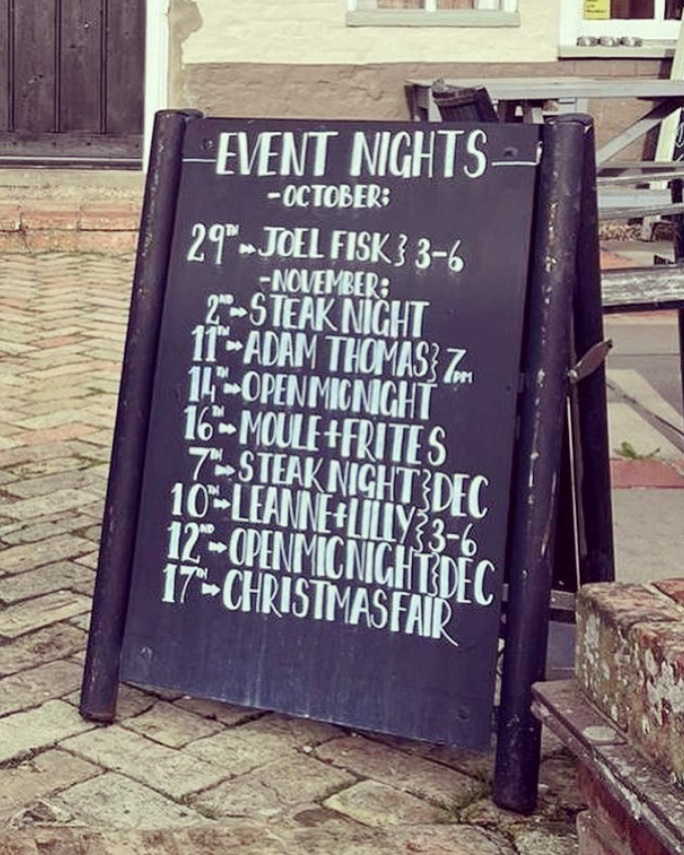 EVENT NIGHTS
-OCTOBER:
29TH JOEL FISK } 3-6
-NOVEMBER:
2ND STEAK NIGHT
11TH ADAM THOMAS } 7PM
14TH OPEN MIC NIGHT
16TH MOULE + FRITES
7TH STEAK NIGHT } DEC
10TH LEANNE + LILLY } 3-6
12ND OPEN MIC NIGHT } DEC
17TH CHRISTMAS FAIR